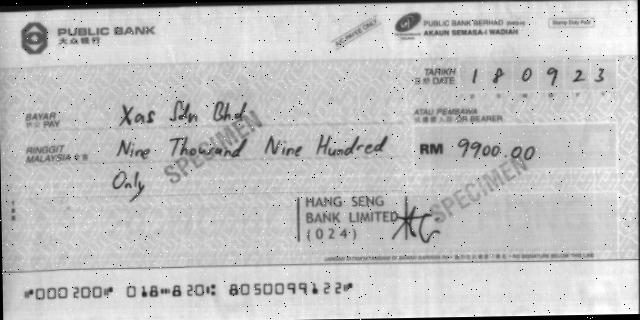 PUBLIC BANK
大众银行
A/C PAYEE ONLY
PUBLIC BANK BERHAD
AKAUN SEMASA-I WADIAH
Stamp Duty Paid
TARIKH
日期 DATE
1 8 0 9 2 3
BAYAR
PAY
Xas Sdn Bhd
ATAU PEMBAWA
OR BEARER
RINGGIT
MALAYSIA
Nine Thousand Nine Hundred
Only
RM 9900.00
SPECIMEN
SPECIMEN
HANG SENG
BANK LIMITED
(024)
⑈000200⑈ 018⑉820⑆ 8050099122⑈